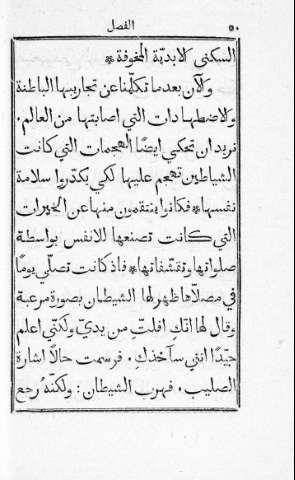 ٥٠ الفصل
السكنى الابديّة المخوفة *
والآن بعدما تكلّمنا عن تجاربها الباطنة
والاضطهادات التي اصابتها من العالم.
نريد ان نحكي ايضًا الهجمات التي كانت
الشياطين تهجم عليها لكي يكدّروا سلامة
نفسها * فكانوا ينتقمون منها عن الخيرات
التي كانت تصنعها للانفس بواسطة
صلواتها وتقشّفاتها * فاذ كانت تصلّي يومًا
في مصلّاها ظهر لها الشيطان بصورة مرعبة
وقال لها انّكِ افلتِّ من يديّ ولكنّي اعلم
جيّدًا انني سآخذكِ. فرسمت حالًا اشارة
الصليب. فهرب الشيطان: ولكنّهُ رجع